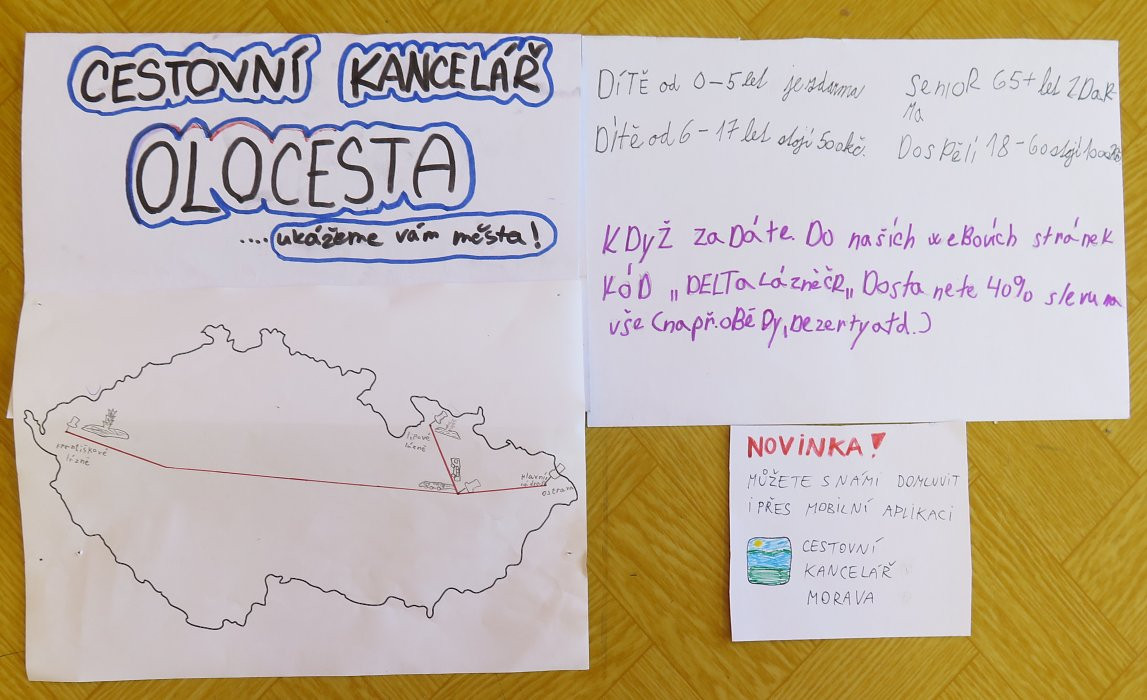 CESTOVNÍ KANCELÁŘ
OLOCESTA
....ukážeme vám města!
františkové
lázně
lipové
lázně
Hlavní
ostrava
DÍTĚ od 0-5 let je zdarma
Dítě od 6-17 let stojí 500kč.
SenioR 65+ let ZDaR-
Ma
DosPělí 18-60 stojí 1000kč
KDyŽ zaDáte Do našich weBovích stránek
KÓD „DELTaLázněČR„ Dostanete 40% slevu na
vše (např.oBěDy, Dezerty atd.)
NOVINKA!
MŮŽETE S NÁMI DOMLUVIT
I PŘES MOBILNÍ APLIKACI
CESTOVNÍ
KANCELÁŘ
MORAVA